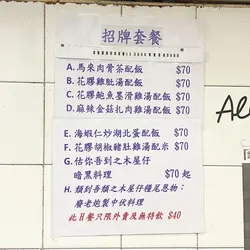 招牌套餐
A. 馬來肉骨茶配飯 $70
B. 花膠雞肚湯配飯 $70
C. 花膠鮑魚墨滑雞湯配飯 $70
D. 麻辣金菇扎肉雞湯配飯 $70
E. 海蝦仁炒湖北蛋配飯 $70
F. 花膠胡椒豬肚雞湯配米 $70
G. 估你吾到之木屋仔
暗黑料理 $70 起
H. 類到吾類之木屋仔糧尾恩物:
廢老炮製中伏料理
此H餐只限外賣及無特飲 $40